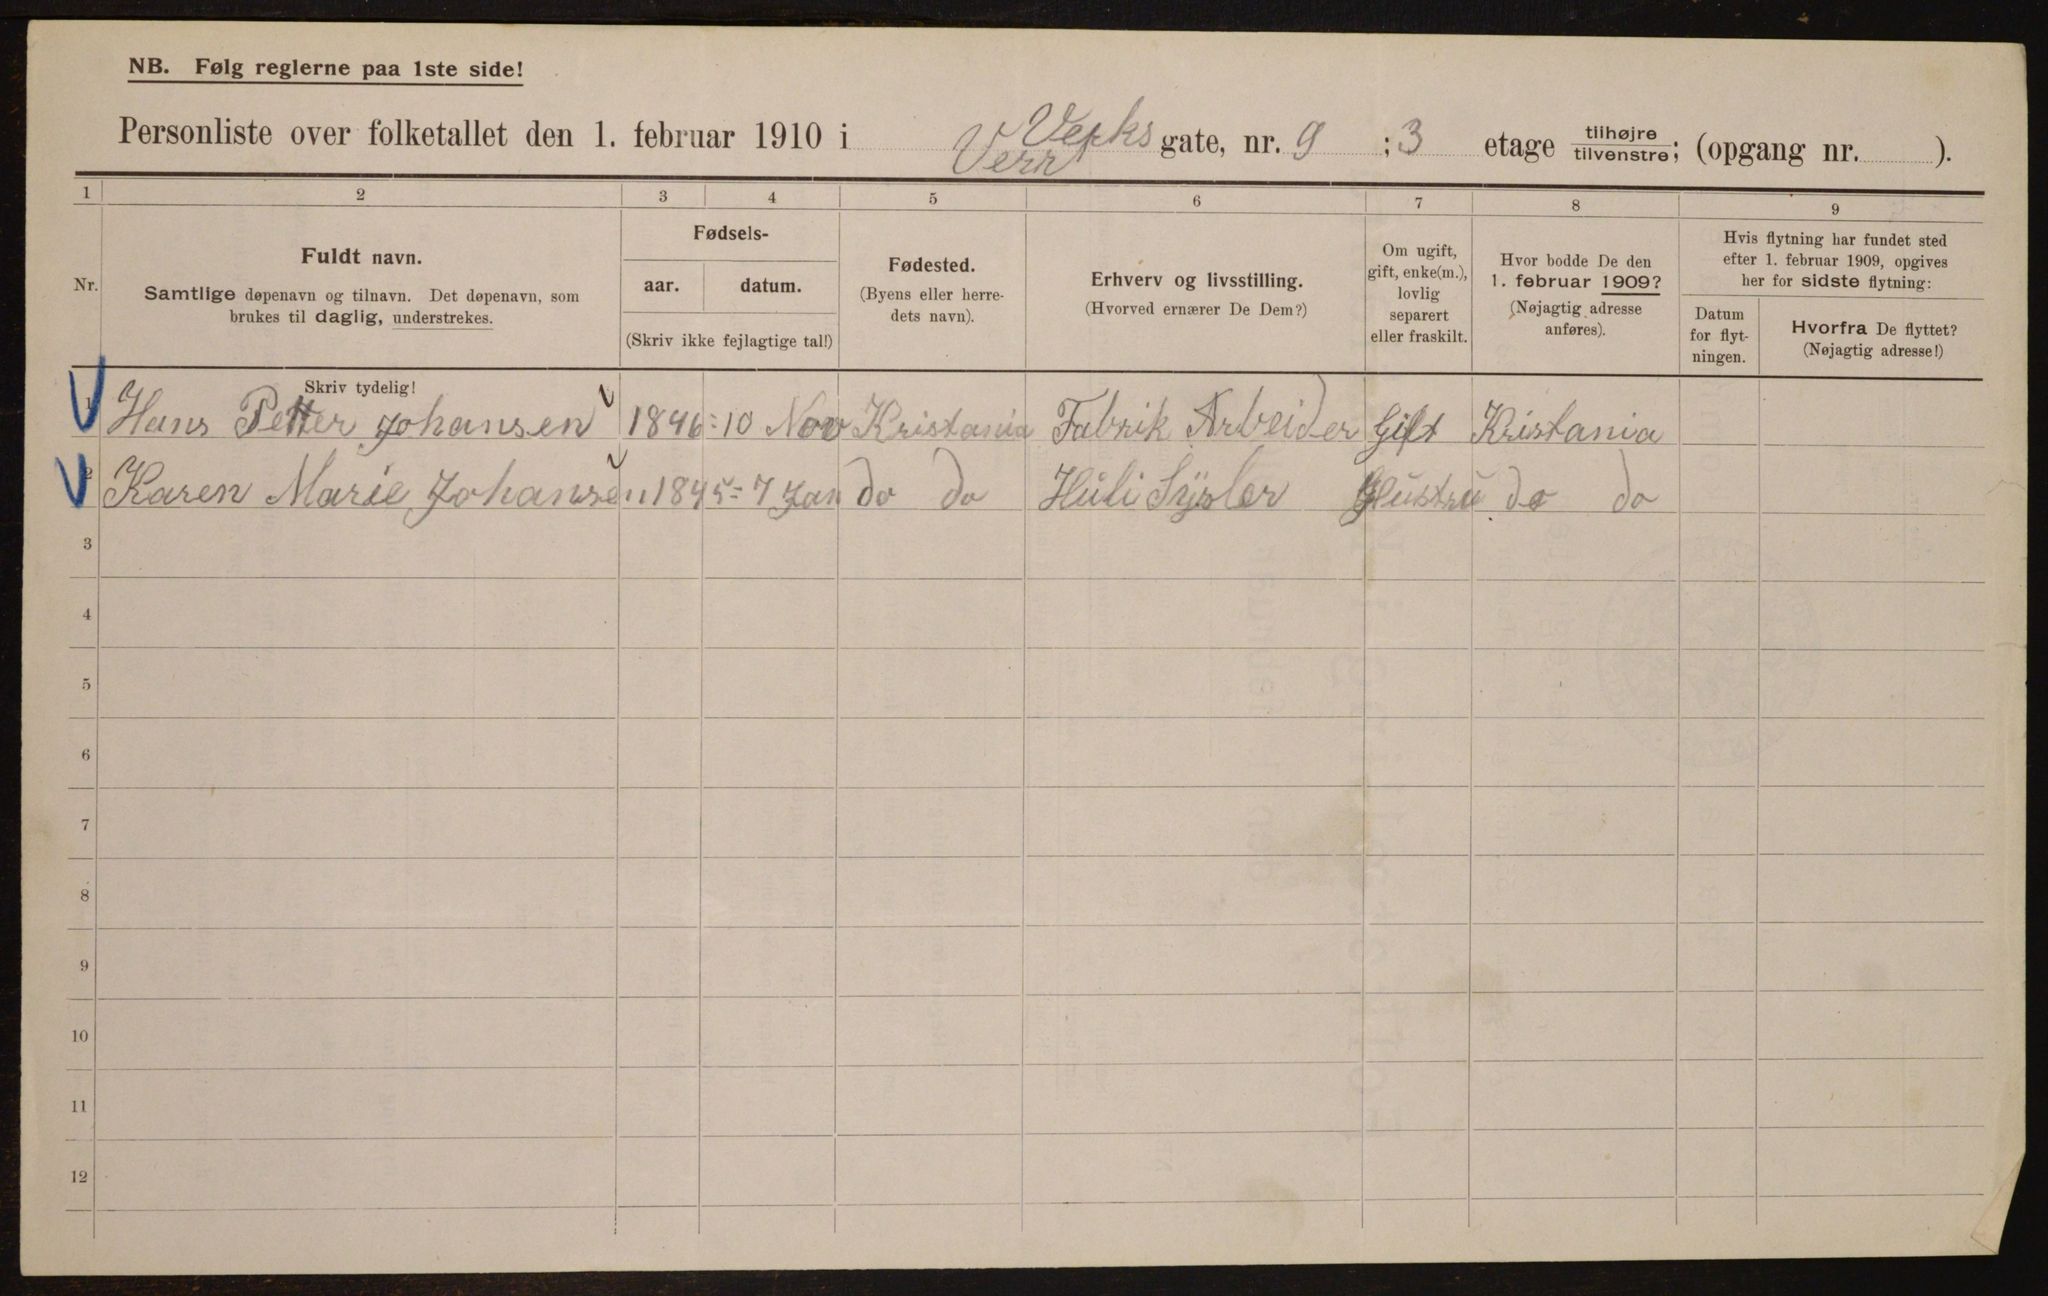 NB. Følg reglerne paa 1ste side!
Personliste over folketallet den 1. februar 1910 i Verks gate, nr. 9 ; 3 etage tilhøjre tilvenstre; (opgang nr. ).
Verr
1 2 3 4 5 6 7 8 9
Nr.
Fuldt navn.
Samtlige døpenavn og tilnavn. Det døpenavn, som
brukes til daglig, understrekes.
Skriv tydelig!
Fødsels-
aar. datum.
(Skriv ikke fejlagtige tal!)
Fødested.
(Byens eller herre-
dets navn).
Erhverv og livsstilling.
(Hvorved ernærer De Dem?)
Om ugift,
gift, enke(m.),
lovlig
separert
eller fraskilt.
Hvor bodde De den
1. februar 1909?
(Nøjagtig adresse
anføres).
Hvis flytning har fundet sted
efter 1. februar 1909, opgives
her for sidste flytning:
Datum
for flyt-
ningen.
Hvorfra De flyttet?
(Nøjagtig adresse!)
1 Hans Petter Johansen 1846 = 10 Nov Kristania Fabrik Arbeider Gift Kristania
2 Karen Marie Johansen 1845 = 7 Jan do do Huli Sysler Hustru do do
3
4
5
6
7
8
9
10
11
12